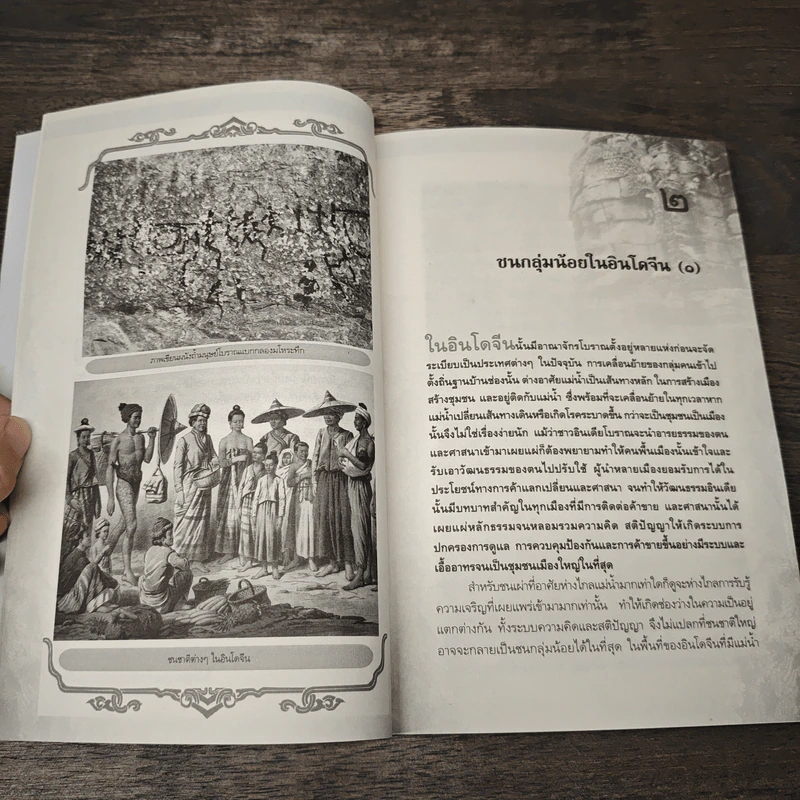 ภาพเขียนผนังถ้ำมนุษย์โบราณแบกกลองมโหระทึก
ชนชาติต่างๆ ในอินโดจีน
๒
ชนกลุ่มน้อยในอินโดจีน (๑)
ในอินโดจีนนั้นมีอาณาจักรโบราณตั้งอยู่หลายแห่งก่อนจะจัด
ระเบียบเป็นประเทศต่างๆ ในปัจจุบัน การเคลื่อนย้ายของกลุ่มคนเข้าไป
ตั้งถิ่นฐานบ้านช่องนั้น ต่างอาศัยแม่น้ำเป็นเส้นทางหลัก ในการสร้างเมือง
สร้างชุมชน และอยู่ติดกับแม่น้ำ ซึ่งพร้อมที่จะเคลื่อนย้ายในทุกเวลาหาก
แม่น้ำเปลี่ยนเส้นทางเดินหรือเกิดโรคระบาดขึ้น กว่าจะเป็นชุมชนเป็นเมือง
นั้นจึงไม่ใช่เรื่องง่ายนัก แม้ว่าชาวอินเดียโบราณจะนำอารยธรรมของตน
และศาสนาเข้ามาเผยแผ่ก็ต้องพยายามทำให้คนพื้นเมืองนั้นเข้าใจและ
รับเอาวัฒนธรรมของตนไปปรับใช้ ผู้นำหลายเมืองยอมรับการได้ใน
ประโยชน์ทางการค้าแลกเปลี่ยนและศาสนา จนทำให้วัฒนธรรมอินเดีย
นั้นมีบทบาทสำคัญในทุกเมืองที่มีการติดต่อค้าขาย และศาสนานั้นได้
เผยแผ่หลักธรรมจนหลอมรวมความคิด สติปัญญาให้เกิดระบบการ
ปกครองการดูแล การควบคุมป้องกันและการค้าขายขึ้นอย่างมีระบบและ
เอื้ออาทรจนเป็นชุมชนเมืองใหญ่ในที่สุด
สำหรับชนเผ่าที่อาศัยห่างไกลแม่น้ำมากเท่าใดก็ดูจะห่างไกลการรับรู้
ความเจริญที่เผยแพร่เข้ามามากเท่านั้น ทำให้เกิดช่องว่างในความเป็นอยู่
แตกต่างกัน ทั้งระบบความคิดและสติปัญญา จึงไม่แปลกที่ชนชาติใหญ่
อาจจะกลายเป็นชนกลุ่มน้อยได้ในที่สุด ในพื้นที่ของอินโดจีนที่มีแม่น้ำ